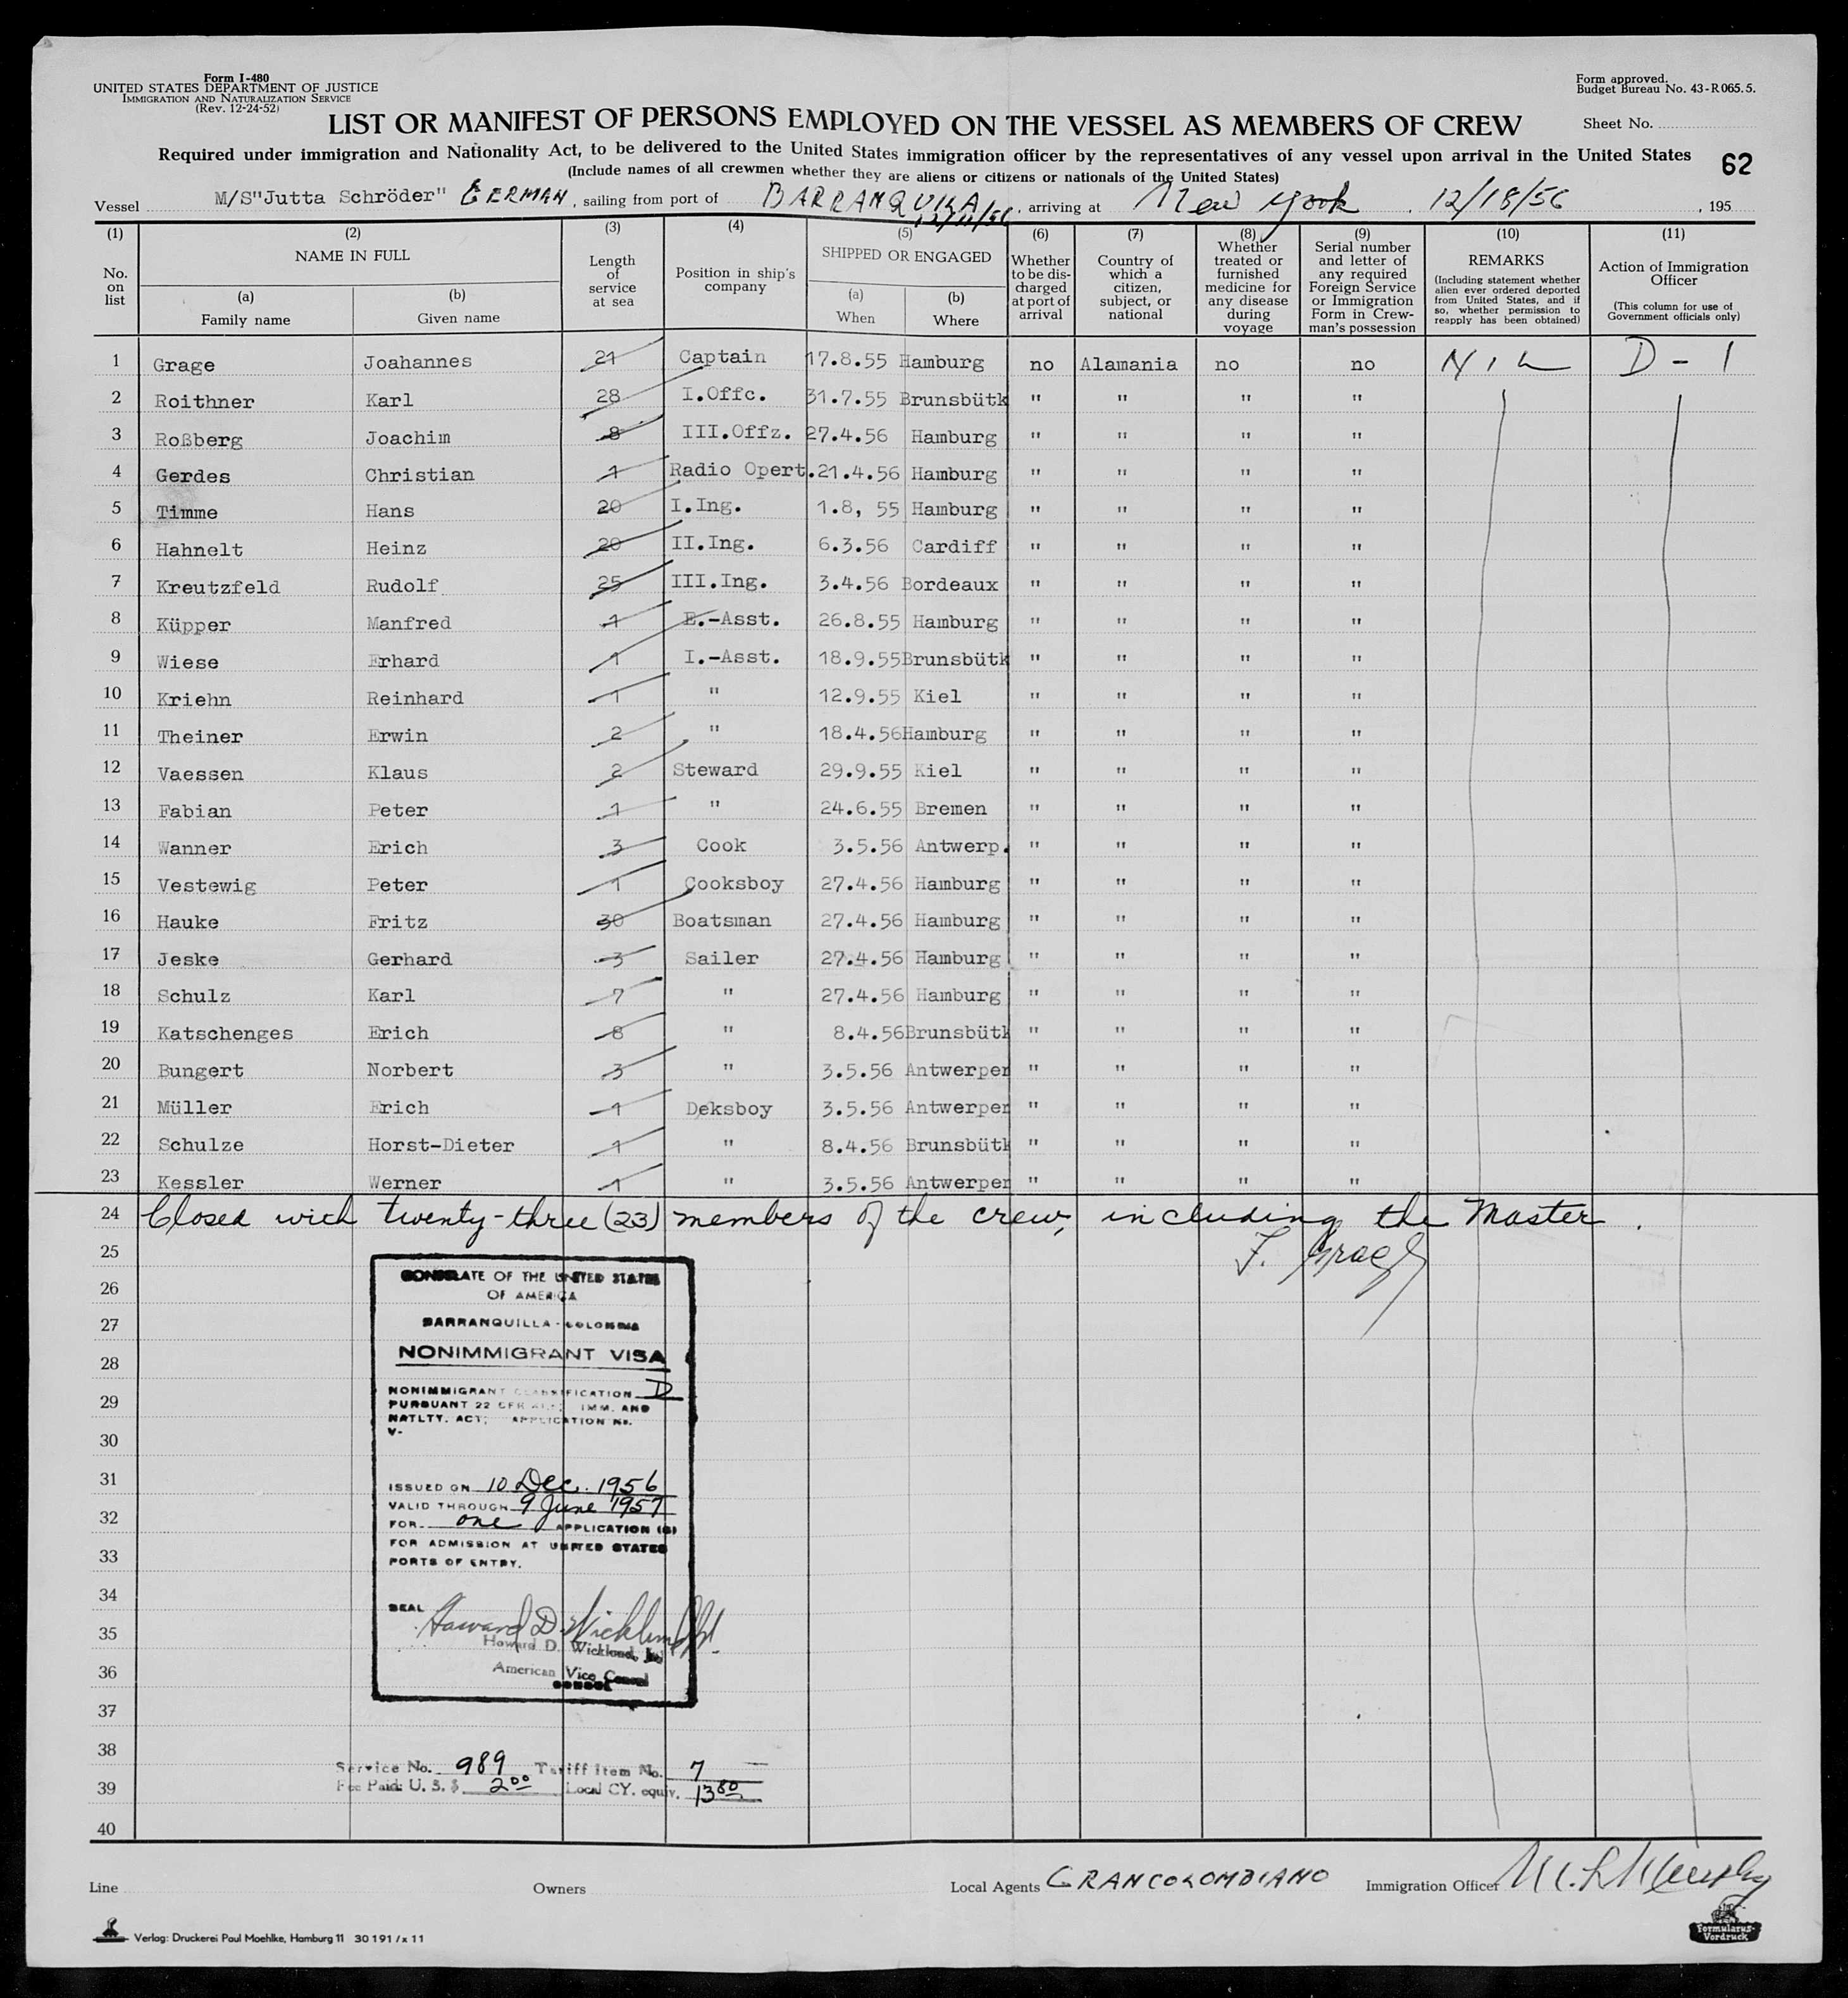 Form I-480
UNITED STATES DEPARTMENT OF JUSTICE
IMMIGRATION AND NATURALIZATION SERVICE
(Rev. 12-24-52)
Form approved.
Budget Bureau No. 43-R065.5.
LIST OR MANIFEST OF PERSONS EMPLOYED ON THE VESSEL AS MEMBERS OF CREW
Sheet No.
Required under immigration and Nationality Act, to be delivered to the United States immigration officer by the representatives of any vessel upon arrival in the United States
62
(Include names of all crewmen whether they are aliens or citizens or nationals of the United States)
Vessel M/S"Jutta Schröder" GERMAN, sailing from port of BARRANQUILLA, arriving at New York 12/18/56, 195
12/11/56
(1) (2) (3) (4) (5) (6) (7) (8) (9) (10) (11)
No. on list
NAME IN FULL
(a) Family name
(b) Given name
Length of service at sea
Position in ship's company
SHIPPED OR ENGAGED
(a) When
(b) Where
Whether to be discharged at port of arrival
Country of which a citizen, subject, or national
Whether treated or furnished medicine for any disease during voyage
Serial number and letter of any required Foreign Service or Immigration Form in Crewman's possession
REMARKS
(Including statement whether alien ever ordered deported from United States, and if so, whether permission to reapply has been obtained)
Action of Immigration Officer
(This column for use of Government officials only)
1 Grage Joahannes 21 Captain 17.8.55 Hamburg no Alamania no no NIL D-1
2 Roithner Karl 28 I.Offc. 31.7.55 Brunsbütk " " " "
3 Roßberg Joachim 8 III.Offz. 27.4.56 Hamburg " " " "
4 Gerdes Christian 1 Radio Opert. 21.4.56 Hamburg " " " "
5 Timme Hans 20 I.Ing. 1.8, 55 Hamburg " " " "
6 Hahnelt Heinz 20 II.Ing. 6.3.56 Cardiff " " " "
7 Kreutzfeld Rudolf 25 III.Ing. 3.4.56 Bordeaux " " " "
8 Küpper Manfred 1 E.-Asst. 26.8.55 Hamburg " " " "
9 Wiese Erhard 1 I.-Asst. 18.9.55 Brunsbütk " " " "
10 Kriehn Reinhard 1 " 12.9.55 Kiel " " " "
11 Theiner Erwin 2 " 18.4.56 Hamburg " " " "
12 Vaessen Klaus 2 Steward 29.9.55 Kiel " " " "
13 Fabian Peter 1 " 24.6.55 Bremen " " " "
14 Wanner Erich 3 Cook 3.5.56 Antwerp. " " " "
15 Vestewig Peter 1 Cooksboy 27.4.56 Hamburg " " " "
16 Hauke Fritz 30 Boatsman 27.4.56 Hamburg " " " "
17 Jeske Gerhard 3 Sailer 27.4.56 Hamburg " " " "
18 Schulz Karl 7 " 27.4.56 Hamburg " " " "
19 Katschenges Erich 8 " 8.4.56 Brunsbütk " " " "
20 Bungert Norbert 3 " 3.5.56 Antwerpen " " " "
21 Müller Erich 1 Deksboy 3.5.56 Antwerpen " " " "
22 Schulze Horst-Dieter 1 " 8.4.56 Brunsbütk " " " "
23 Kessler Werner 1 " 3.5.56 Antwerpen " " " "
24 Closed with twenty-three (23) members of the crew, including the Master.
25
26
27
28
29
30
31
32
33
34
35
36
37
38
39
40
CONSULATE OF THE UNITED STATES
OF AMERICA
BARRANQUILLA - COLOMBIA
NONIMMIGRANT VISA
NONIMMIGRANT CLASSIFICATION D
PURSUANT 22 CFR IMM. AND
NATLTY. ACT; APPLICATION No.
V-
ISSUED ON 10 Dec. 1956
VALID THROUGH 9 June 1957
FOR one APPLICATION (S)
FOR ADMISSION AT UNITED STATES
PORTS OF ENTRY.
SEAL Howard D. Wicklund Jr.
Howard D. Wicklund, Jr.
American Vice Consul
Service No. 989 Tariff Item No. 7
Fee Paid: U. S. $ 2.00 Local CY. equiv. 13.80
Line
Owners
Local Agents GRANCOLOMBIANO
Immigration Officer
Verlag: Druckerei Paul Moehlke, Hamburg 11 30 191 /x 11
Formularus-Vordruck